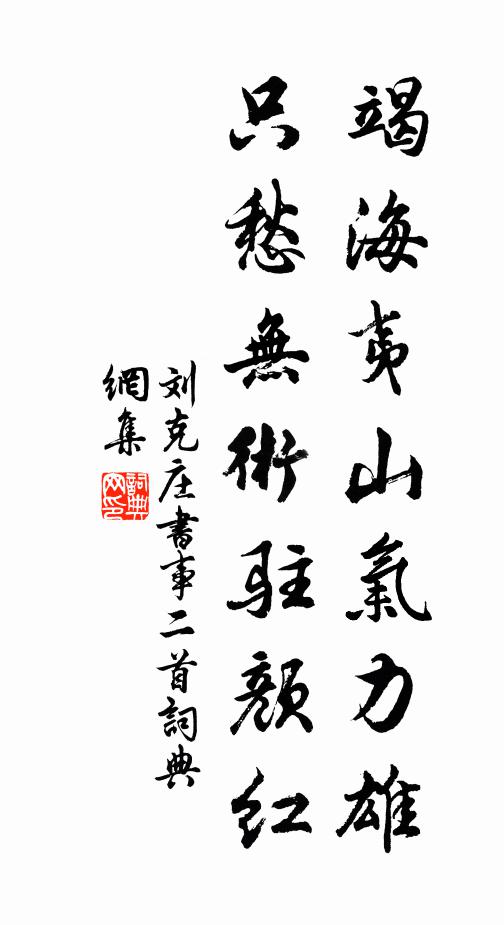 竭海夷山氣力雄
只愁無術駐顏紅
刘克庄書事二首詞典
網集
詞典
网印